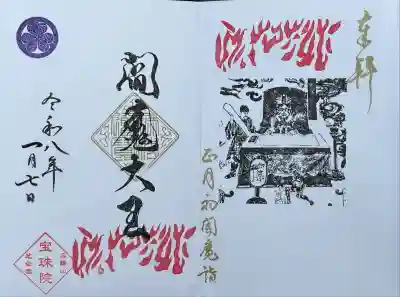 奉拝
正月初閻魔詣
閻魔大王
令和八年
一月七日
宝珠院